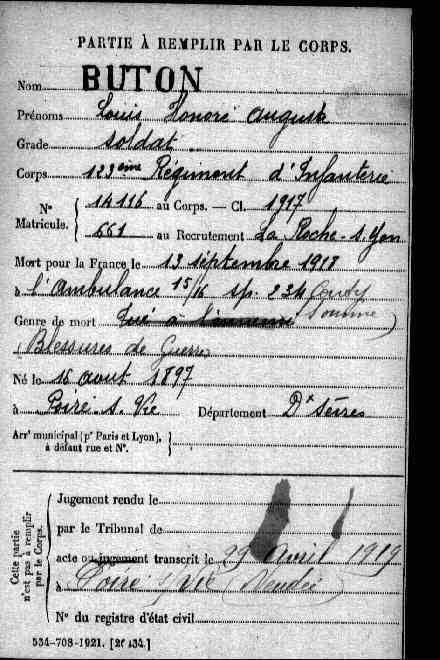 PARTIE À REMPLIR PAR LE CORPS.
Nom BUTON
Prénoms Louis Honoré Auguste
Grade soldat
Corps 123ème Régiment d'Infanterie
N° Matricule. { 14116 au Corps. — Cl. 1917
661 au Recrutement La Roche-s-Yon
Mort pour la France le 13 septembre 1918
à l'Ambulance 15/16 sp. 234 Conty
Genre de mort Tué à l'ennemi (Somme)
Blessures de Guerre
Né le 16 août 1897
à Poiré-s-Vie Département Dx Sèvres
Arrt municipal (pr Paris et Lyon), à défaut rue et N°. }
Cette partie n'est pas à remplir par le Corps.
Jugement rendu le
par le Tribunal de
acte ou jugement transcrit le 29 Avril 1919
à Poiré s/Vie (Vendée)
N° du registre d'état civil
534-708-1921. [26434.]